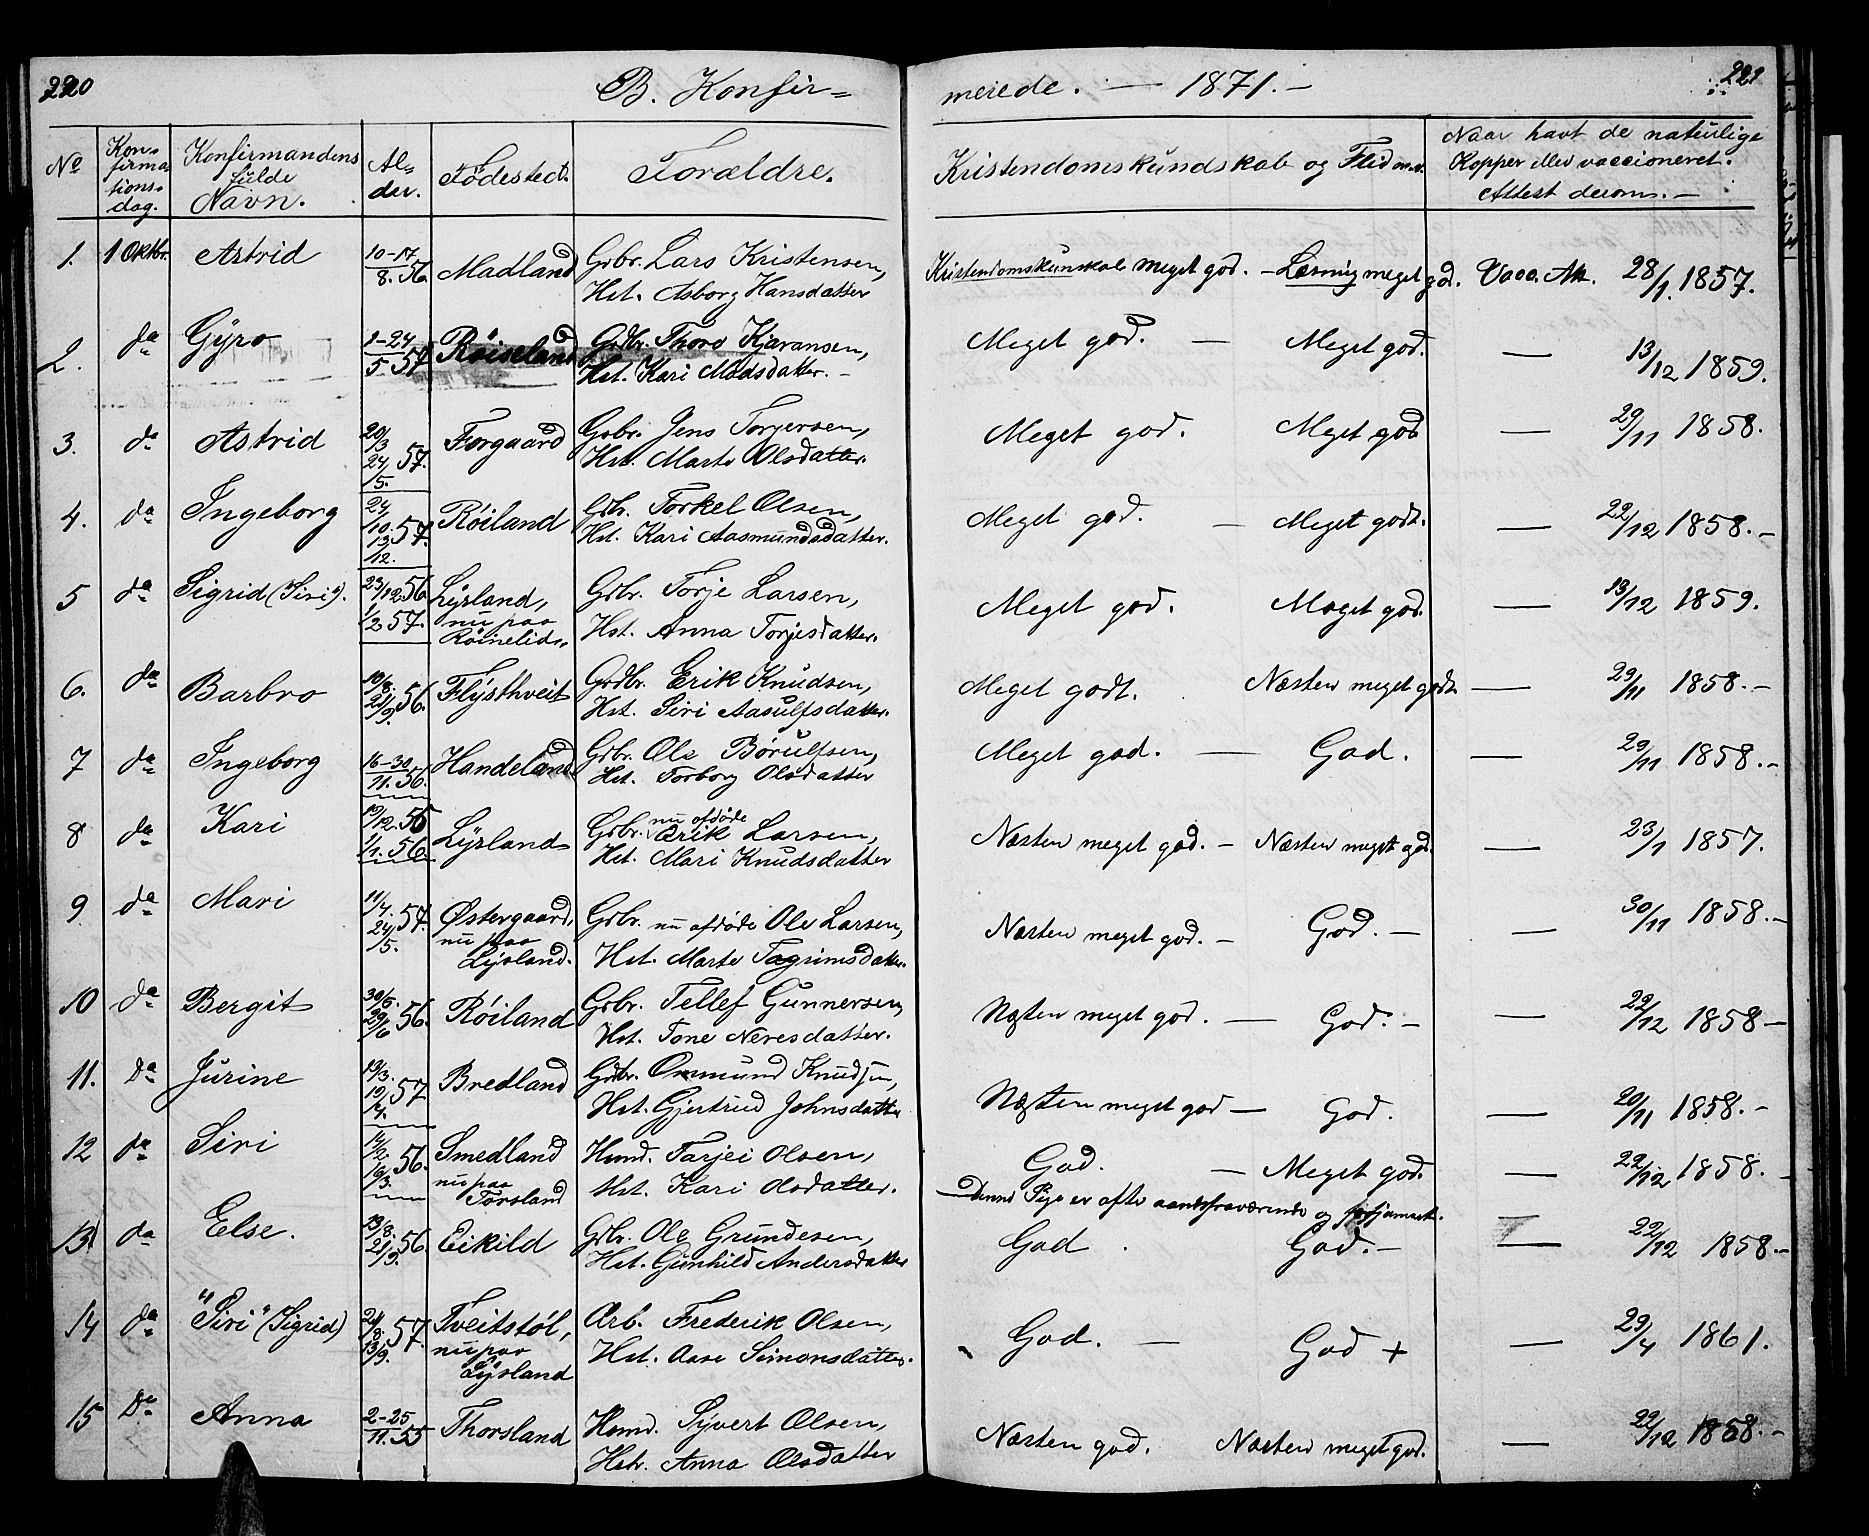 220
B. Konfir=
merede. — 1871. —
221
No
Kon=
firma=
tions=
dag.
Konfirmandens
fulde
Navn.
Al=
der.
Fødested.
Forældre.
Kristendomskundskab og Flid m.v.
Naar havt de naturlige
Kopper eller vaccioneret.
Attest derom. —
1. 1 Oktbr. Astrid 10-17/8.56. Madland Grbr. Lars Kristensen,
Hst. Asborg Hansdatter
Kristendomskunskab meget god. — Læsning meget god. Vacc. Att. 28/1. 1857.
2. do Gyro 1-24/5 57 Røiseland Grdbr. Thore Kjøransen,
Hst. Kari Madsdatter. —
Meget god. — Meget god. — 13/12 1859.
3. do Astrid 20/3 24/5. 57. Førgaard Grbr. Jens Torjersen,
Hst. Marte Olsdatter.
Meget god. Meget god 29/11 1858.
4. do Ingeborg 24/10. 13/12. 57. Røiland Grbr. Torkel Olsen,
Hst. Kari Aasmundsdatter.
Meget god. — Meget godt. — 22/12 1858. —
5 do Sigrid (Siri). 23/12 56. 1/2 57. Lysland,
nu paa
Røinelid.
Grbr. Torje Larsen,
Hst. Anna Torjesdatter.
Meget god. Meget god. — 13/12 1859.
6. do Barbro 10/8. 21/9. 56. Flysthveit Grdbr. Erik Knudsen,
Hst. Siri Aasulfsdatter.
Meget godt. Næsten meget godt. — 29/11 1858. —
7 do Ingeborg 16-30/11. 56. Handeland Grbr. Ole Børulfsen,
Hst. Torborg Olsdatter
Meget god. — God. — 29/11 1858. —
8 do Kari 19/12. 55 1/1. 56. Lysland Grbr. nu afdøde Erik Larsen,
Hst. Mari Knudsdatter
Næsten meget god. — Næsten meget god. — 23/1 1857.
9 do Mari 11/4. 24/5. 57. Østergaard,
nu paa
Lysland.
Grbr. nu afdøde Ole Larsen,
Hst. Marte Tagrimsdatter.
Næsten meget god. — God. — — 30/11 1858. —
10 do Bergit 30/5. 29/6 56. Røiland Grbr. Tellef Gunnersen,
Hst. Tone Neresdatter.
Næsten meget god. — God. — — 22/12 1858 —
11. Do Jurine 19/3. 19/4. 57 Bredland Gdbr. Ommund Knudsen,
Hst. Gjertrud Johnsdatter
Næsten meget god — God. — 20/11 1858. —
12 do Siri 14/2 16/3. 56. Smedland
nu paa
Torsland
Husmd. Tarjei Olsen,
Hst. Kari Olsdatter.
God. — Meget god. — 22/12 1858. —
Denne Pige er ofte aandsfraværende og
13. do Else. 13/8. 21/9. 56. Eikild Grbr. Ole Grundesen,
Hst. Gunhild Andersdatter
God. God. — — 22/12 1858. —
14 do "Siri" (Sigrid) 24/8. 13/9. 57. Tveitstøl,
nu paa
Lysland
Arb. Frederik Olsen,
Hst. Aase Simonsdatter.
God. — God + — 29/4 1861.
15 Do Anna 2-25/11. 55 Thorsland Husmd. Syvert Olsen,
Hstr. Anna Olsdatter
Næsten god. Næsten meget god. — 22/12 1858. —